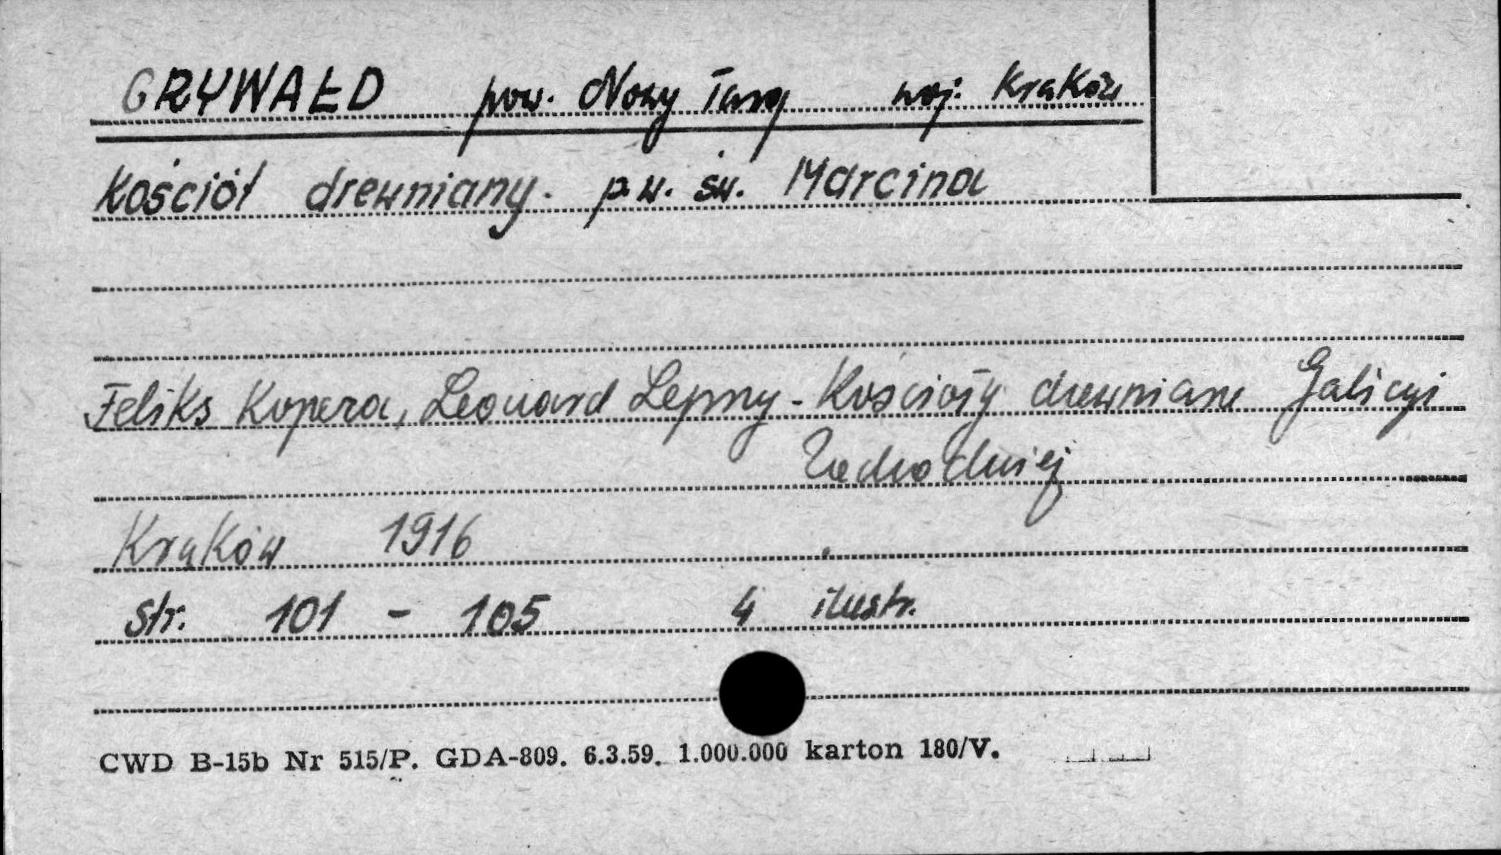 GRYWAŁD pow. Nowy Targ woj. Kraków
Kościół drewniany. p.w. św. Marcina
Feliks Kopera, Leonard Lepszy - Kościoły drewniane Galicyi
Zachodniej
Kraków 1916
str. 101 - 105 4 ilustr.
CWD B-15b Nr 515/P. GDA-809. 6.3.59. 1.000.000 karton 180/V.